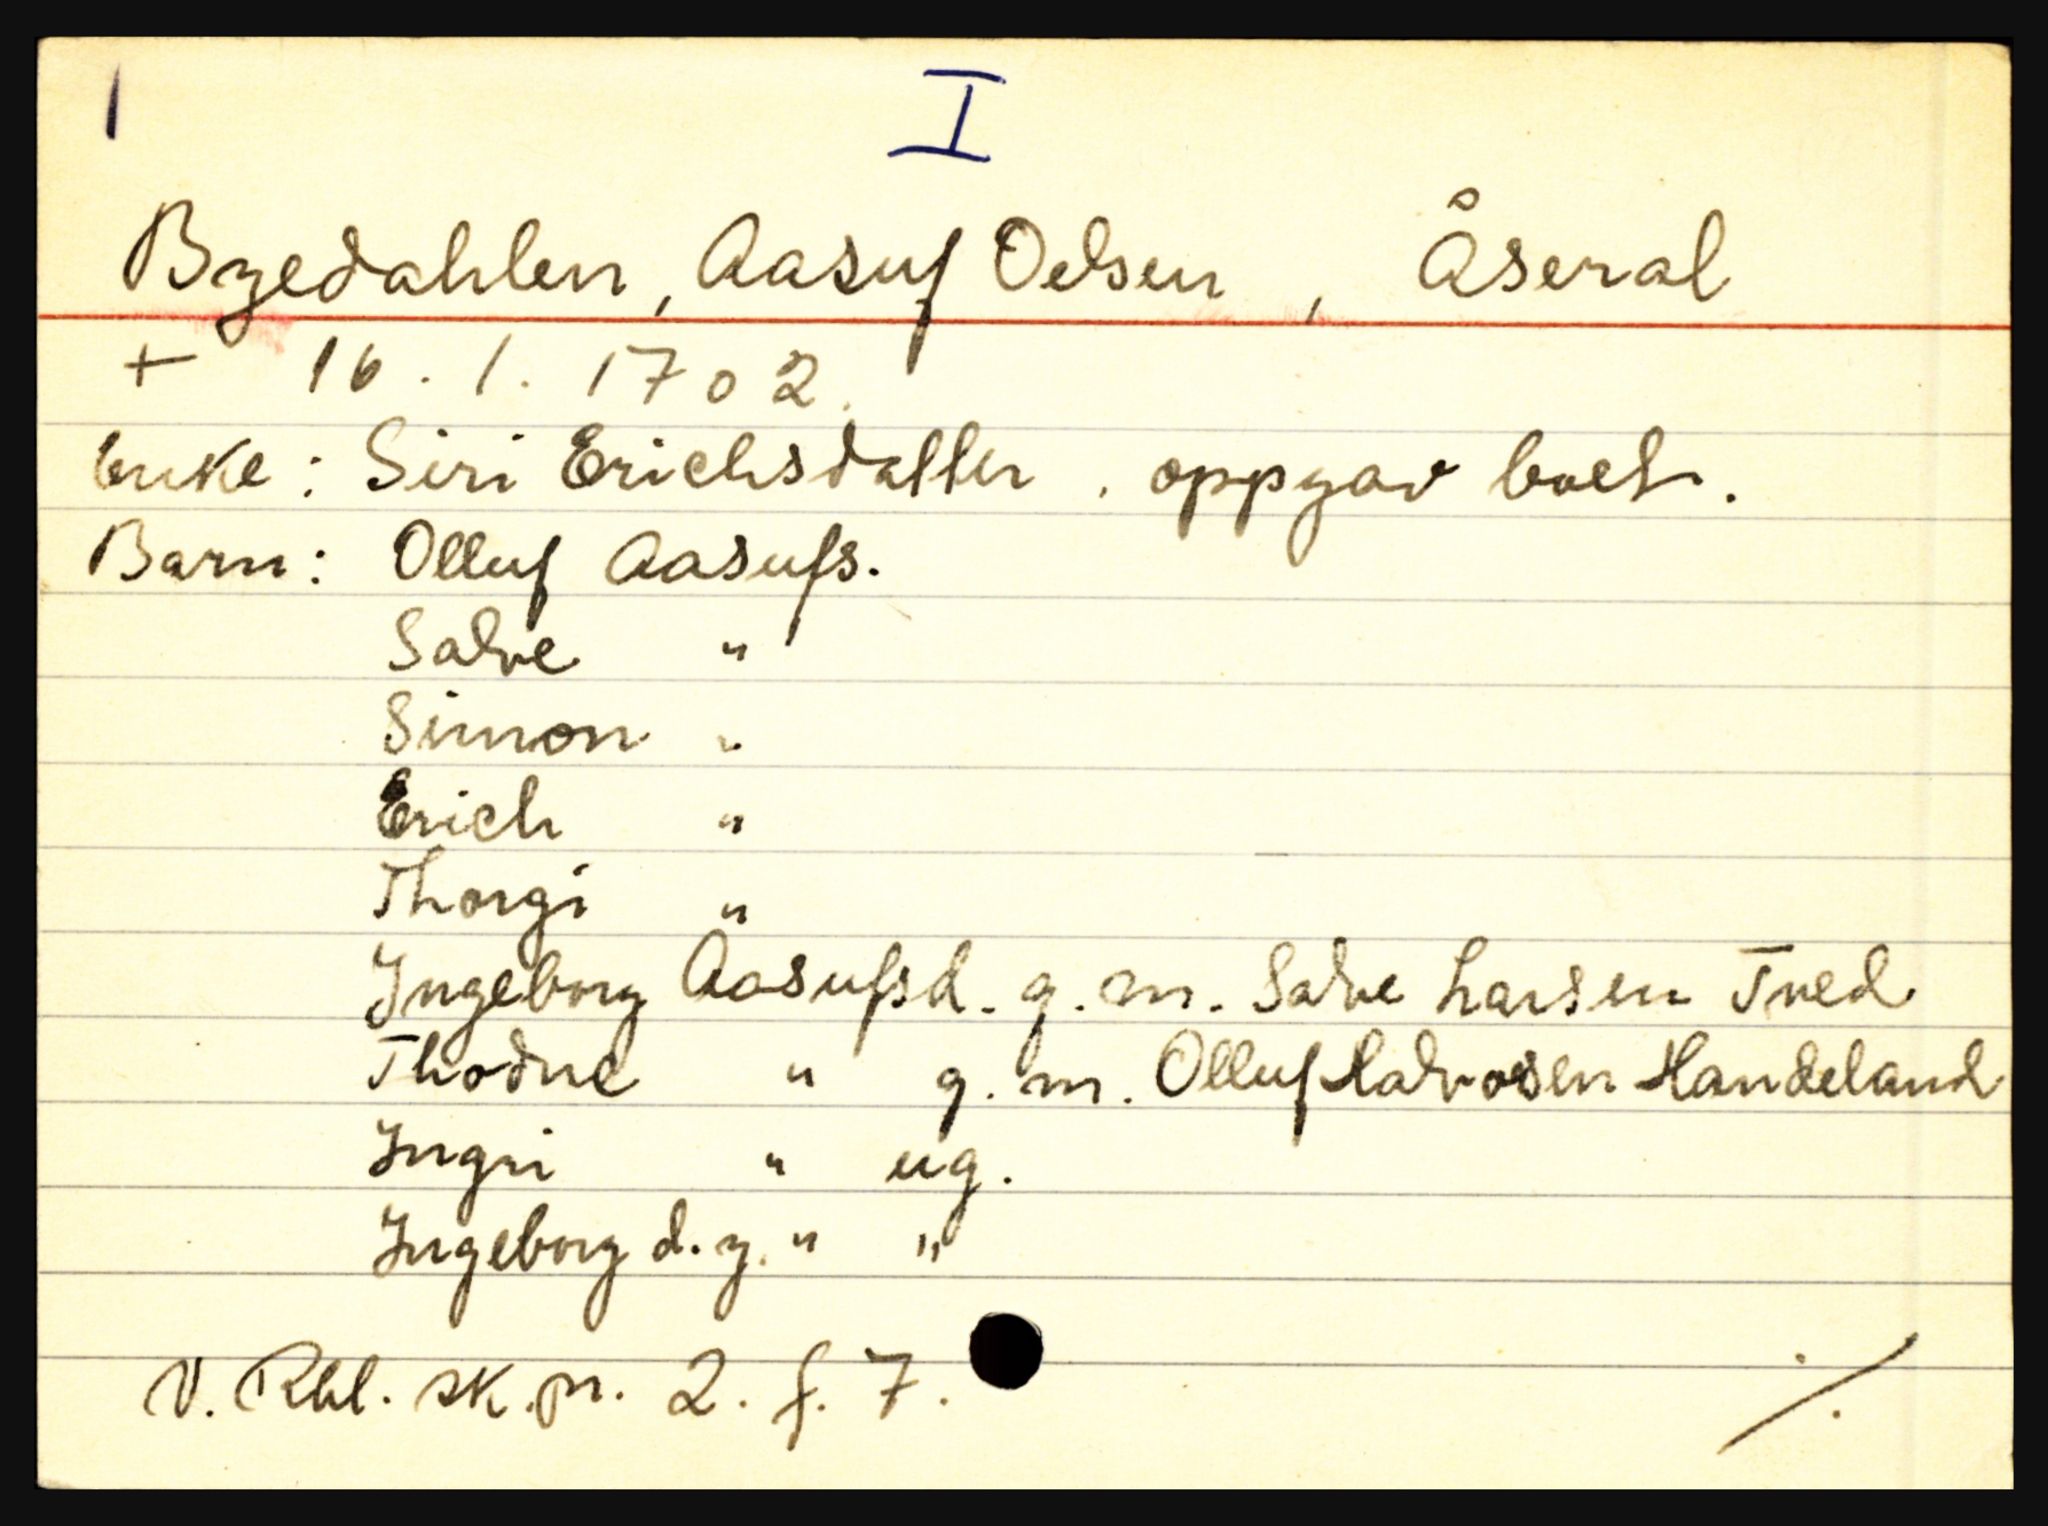 1 I
Byedahlen, Aasuf Oelsen, Åseral
+ 16. 1. 1702.
Enke: Siri Erichsdatter. oppgav boet.
Barn: Olluf Aasufs.
Salve "
Simon "
Erich "
Thorgi "
Ingeborg Aasufsd. g. m. Salve Larsen Tved
Thodne " g. m. Olluf Halvorsen Handeland
Ingri " ug.
Ingeborg d. y. " "
V. Rbl. sk.pr. 2. f. 7. ./.